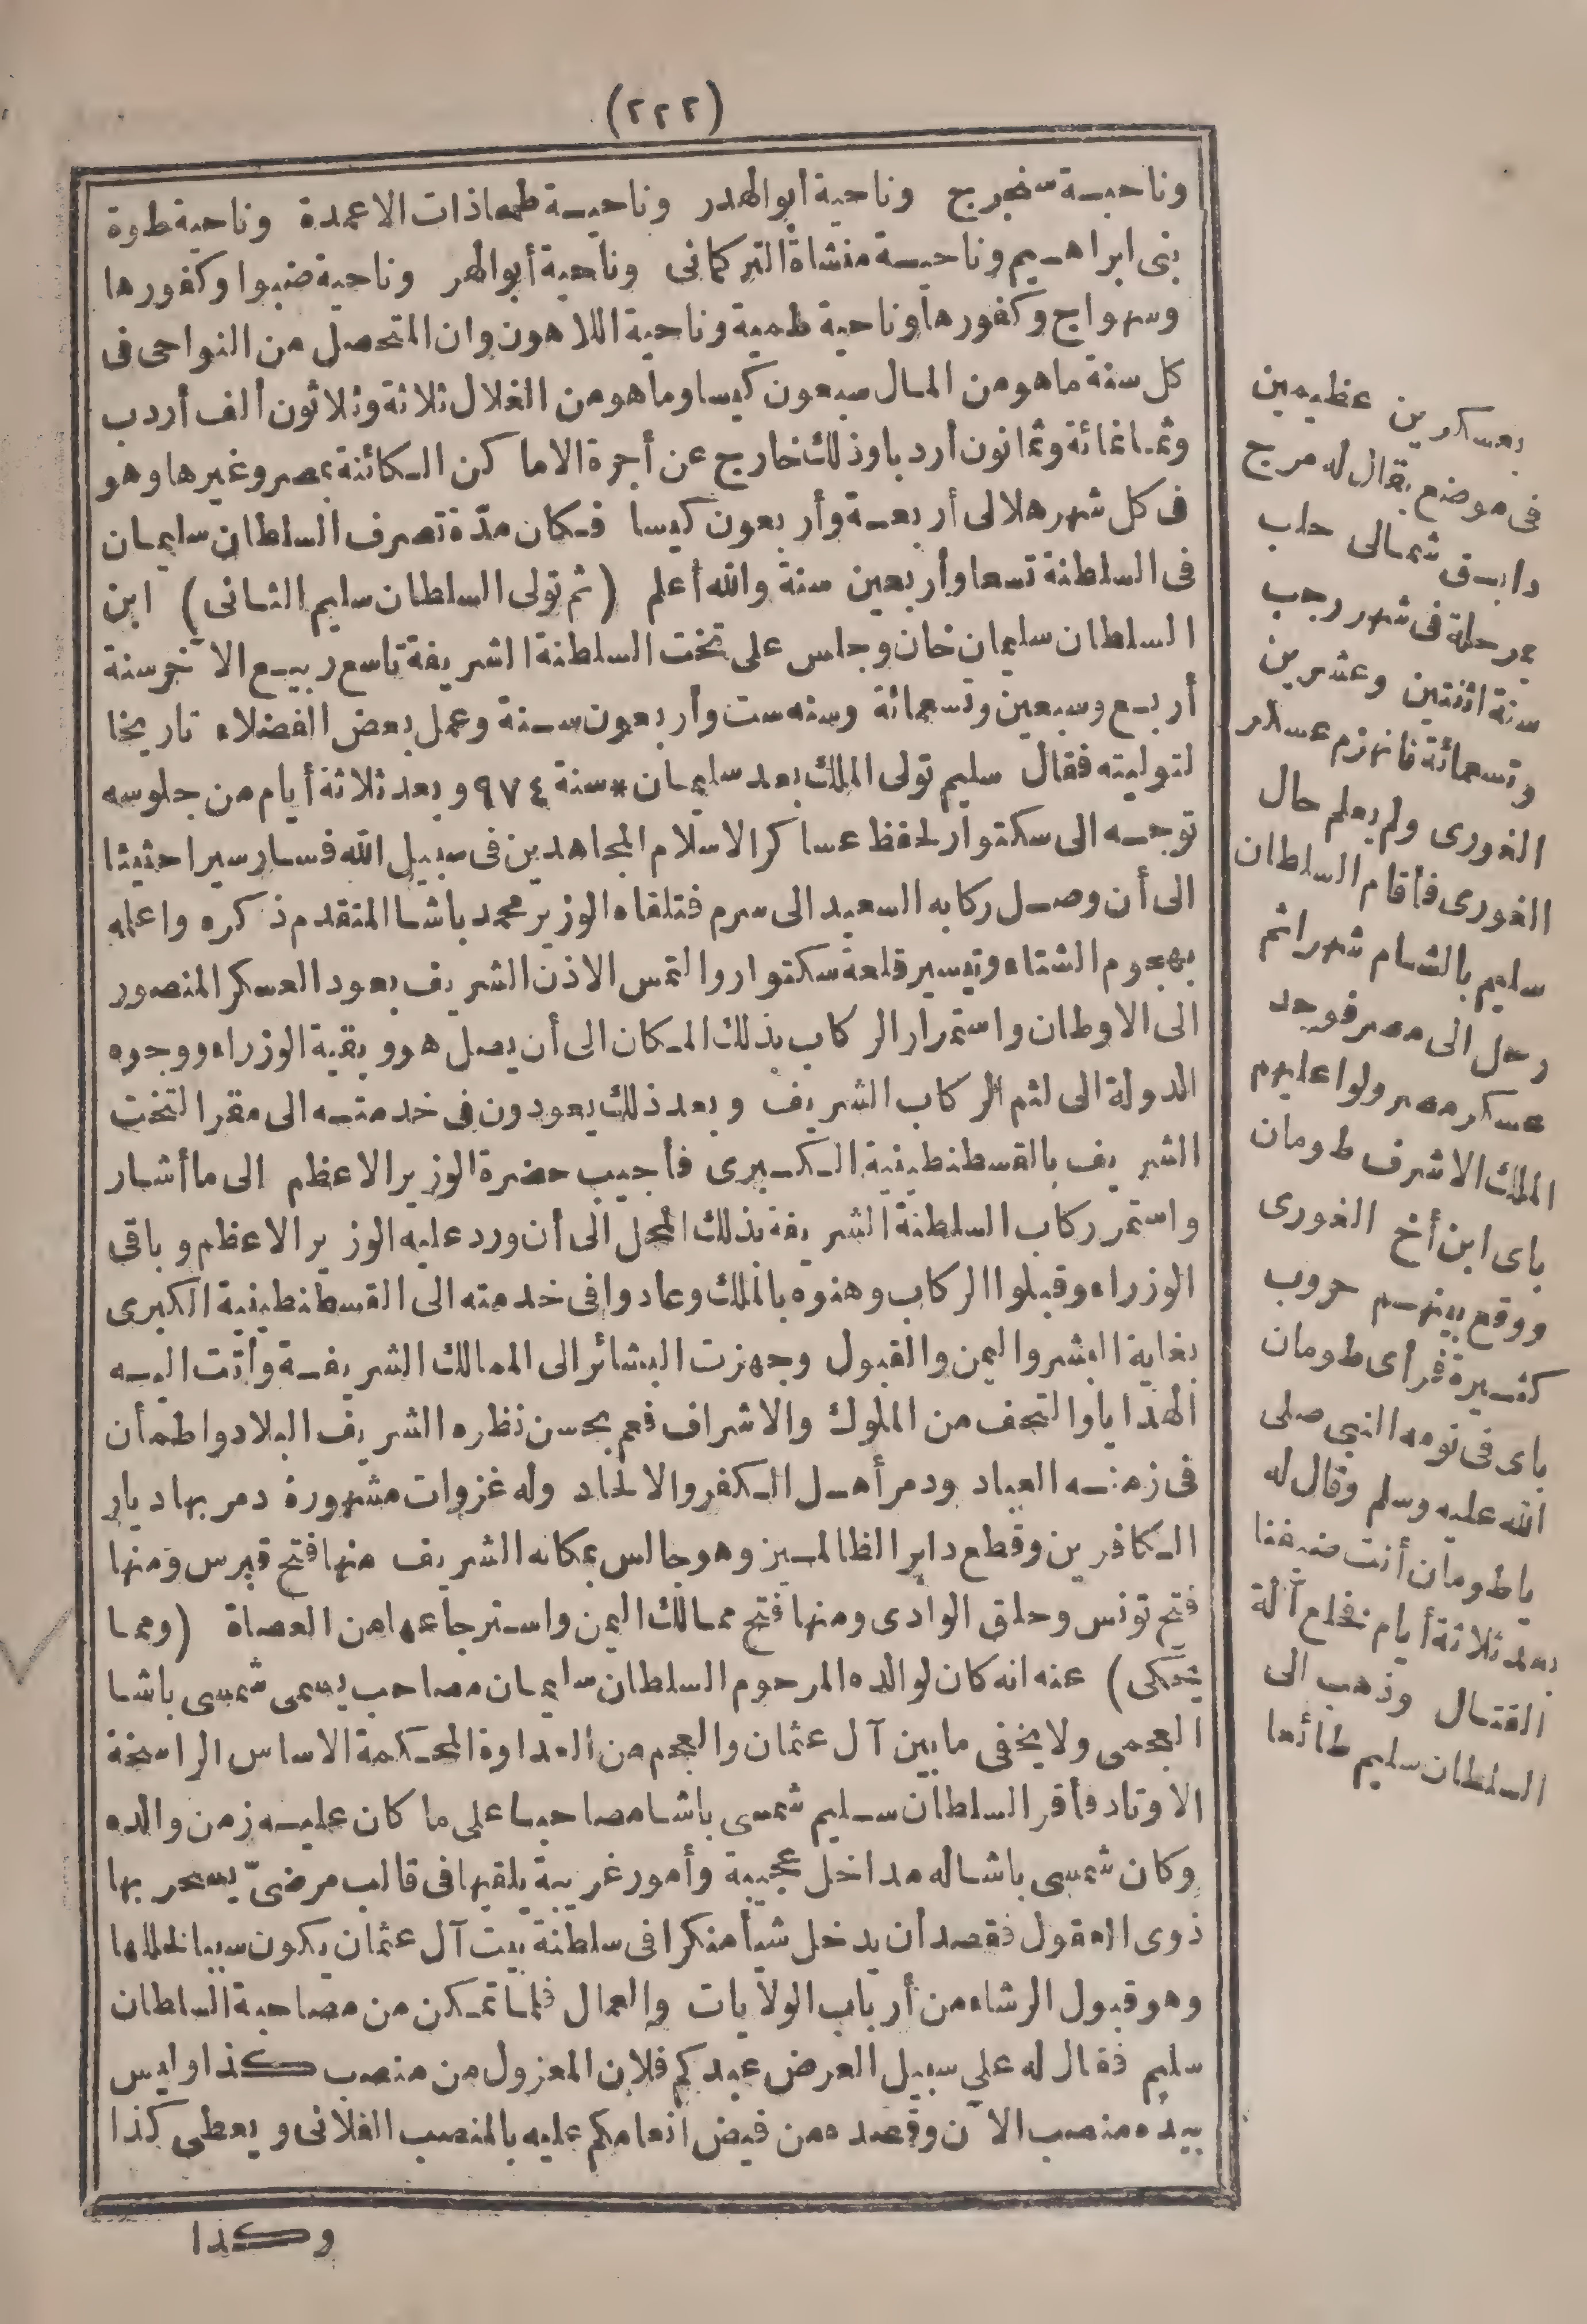 (٢٢٢)
وناحية سفجرج وناحية ابوالهدر وناحية طمها ذات الاعمدة وناحية طوة
بنى ابراهيم وناحية منشاة التركمانى وناحية أبوالهر وناحية ضنبوا وكفورها
وسهواج وكفورها وناحية طمية وناحية اللاهون وان المتحصل من النواحى فى
كل سنة ما هو من المال سبعون كيسا وما هو من الغلال ثلاثة وثلاثون ألف أردب
وثمانمائة وثمانون أردبا وذلك خارج عن أجرة الاماكن الكائنة بمصر وغيرها وهو
فى كل شهر هلالى أربعة وأربعون كيسا فكان مدّة تصرف السلطان سليمان
فى السلطنة تسعا وأربعين سنة والله أعلم (ثم تولى السلطان سليم الثانى) ابن
السلطان سليمان خان وجلس على تخت السلطنة الشريفة تاسع ربيع الآخر سنة
أربع وسبعين وتسعمائة وسنه ست وأربعون سنة وعمل بعض الفضلاء تاريخا
لتوليته فقال سليم تولى الملك بعد سليمان * سنة ٩٧٤ وبعد ثلاثة أيام من جلوسه
توجه الى سكتوار لحفظ عساكر الاسلام المجاهدين فى سبيل الله فسار سيرا حثيثا
الى أن وصل ركابه السعيد الى سرم فتلقاه الوزير محمد باشا المتقدم ذكره واعلمه
بهجوم الشتاء وتيسير قلعة سكتوار والتمس الاذن الشريف بعود العسكر المنصور
الى الاوطان واستمرار الركاب بذلك المكان الى أن يصل هو وبقية الوزراء ووجوه
الدولة الى لثم الركاب الشريف وبعد ذلك يعودون فى خدمته الى مقر التخت
الشريف بالقسطنطينية الكبرى فأجيب حضرة الوزير الاعظم الى ما أشار
واستمر ركاب السلطنة الشريفة بذلك المحل الى أن ورد عليه الوزير الاعظم وباقى
الوزراء وقبلوا الركاب وهنوه بالملك وعادوا فى خدمته الى القسطنطينية الكبرى
بغاية البشر واليمن والقبول وجهزت البشائر الى الممالك الشريفة وأتت اليه
الهدايا والتحف من الملوك والاشراف فعم بحسن نظره الشريف البلاد واطمأن
فى زمنه العباد ودمر أهل الكفر والالحاد وله غزوات مشهورة دمر بها ديار
الكافرين وقطع دابر الظالمين وهو جالس بمكانه الشريف منها فتح قبرس ومنها
فتح تونس وحلق الوادى ومنها فتح ممالك اليمن واسترجاعها من العصاة (ومما
يحكى) عنه انه كان لوالده المرحوم السلطان سليمان مصاحب يسمى شمسى باشا
العجمى ولا يخفى ما بين آل عثمان والعجم من العداوة المحكمة الاساس الراسخة
الاوتاد فأقر السلطان سليم شمسى باشا مصاحبا على ما كان عليه زمن والده
وكان شمسى باشا له مداخل عجيبة وأمور غريبة يلقيها فى قالب مرضىّ يسحر بها
ذوى العقول فقصد أن يدخل شيأ منكرا فى سلطنة بيت آل عثمان يكون سببا لخللها
وهو قبول الرشاء من أرباب الولايات والعمال فلما تمكن من مصاحبة السلطان
سليم فقال له على سبيل العرض عبدكم فلان المعزول من منصب كذا وليس
بيده منصب الآن وقصده من فيض انعامكم عليه بالمنصب الفلانى ويعطى كذا
وكذا
بعسكرين عظيمين
فى موضع يقال له مرج
دابق شمالى حلب
بمرحلة فى شهر رجب
سنة اثنتين وعشرين
وتسعمائة فانهزم عسكر
الغورى ولم يعلم حال
الغورى فأقام السلطان
سليم بالشام شهرا ثم
رحل الى مصر فوجد
عسكر مصر ولوا عليهم
الملك الاشرف طومان
باى ابن أخ الغورى
ووقع بينهم حروب
كثيرة فرأى طومان
باى فى نومه النبى صلى
الله عليه وسلم وقال له
ياطومان أنت ضيفنا
بعد ثلاثة أيام فخلع آلة
القتال وذهب الى
السلطان سليم طائعا